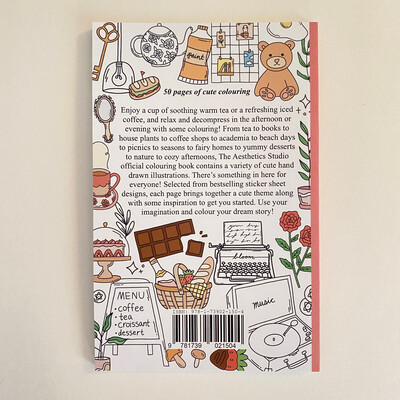 paint
50 pages of cute colouring
Enjoy a cup of soothing warm tea or a refreshing iced
coffee, and relax and decompress in the afternoon or
evening with some colouring! From tea to books to
house plants to coffee shops to academia to beach days
to picnics to seasons to fairy homes to yummy desserts
to nature to cozy afternoons, The Aesthetics Studio
official colouring book contains a variety of cute hand
drawn illustrations. There's something in here for
everyone! Selected from bestselling sticker sheet
designs, each page brings together a cute theme along
with some inspiration to get you started. Use your
imagination and colour your dream story!
bloom
MENU
• coffee
• tea
• croissant
• dessert
music
ISBN: 978-1-73902-150-4
9 781739 021504